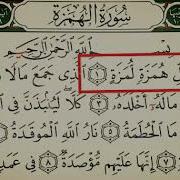 سُورَةُ الْهُمَزَةِ
بِسْمِ اللَّهِ الرَّحْمَٰنِ الرَّحِيمِ
لِّ هُمَزَةٍ لُّمَزَةٍ ١ الَّذِي جَمَعَ مَالًا وَ
مَالَهُ أَخْلَدَهُ ٣ كَلَّا لَيُنبَذَنَّ فِي
مَا الْحُطَمَةُ ٥ نَارُ اللَّهِ الْمُوقَدَةُ ٦
٧ إِنَّهَا عَلَيْهِم مُّؤْصَدَةٌ ٨ فِي عَمَدٍ